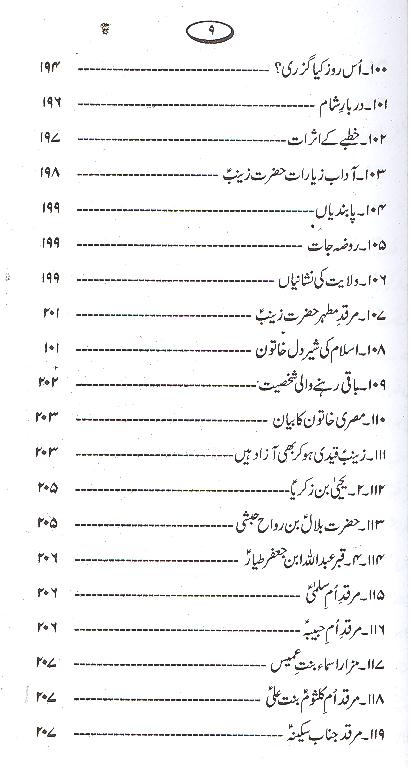 ۹
۱۰۰۔اُس روز کیا گزری؟ ---------------------------- ۱۹۴
۱۰۱۔دربارِ شام ---------------------------- ۱۹۶
۱۰۲۔خطبے کے اثرات ---------------------------- ۱۹۷
۱۰۳۔آداب زیارات حضرت زینبؑ ---------------------------- ۱۹۸
۱۰۴۔پابندیاں ---------------------------- ۱۹۹
۱۰۵۔روضہ جات ---------------------------- ۱۹۹
۱۰۶۔ولایت کی نشانیاں ---------------------------- ۱۹۹
۱۰۷۔مرقدِ مطہر حضرت زینبؑ ---------------------------- ۲۰۱
۱۰۸۔اسلام کی شیر دل خاتون ---------------------------- ۱۰۱
۱۰۹۔باقی رہنے والی شخصیت ---------------------------- ۲۰۲
۱۱۰۔مصری خاتون کا بیان ---------------------------- ۲۰۳
۱۱۱۔زینبؑ قیدی ہو کر بھی آزاد ہیں ---------------------------- ۲۰۳
۱۱۲۔۲۔یحییٰ بن زکریاؑ ---------------------------- ۲۰۵
۱۱۳۔حضرت بلالؓ بن رواح حبشی ---------------------------- ۲۰۵
۱۱۴۔۴۔قبر عبداللہ ابن جعفر طیارؑ ---------------------------- ۲۰۶
۱۱۵۔مرقدِ اُم سلمیٰؑ ---------------------------- ۲۰۶
۱۱۶۔مرقدِ اُم حبیبہؑ ---------------------------- ۲۰۶
۱۱۷۔مزار اسماء بنت عمیس ---------------------------- ۲۰۷
۱۱۸۔مرقد اُم کلثومؑ بنت علیؑ ---------------------------- ۲۰۷
۱۱۹۔مرقد جناب سکینہؑ ---------------------------- ۲۰۷